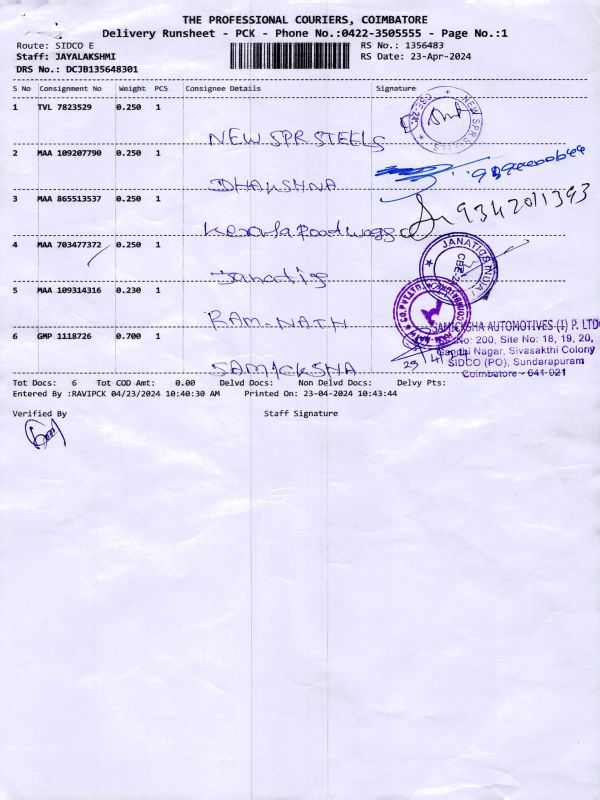 THE PROFESSIONAL COURIERS, COIMBATORE
Delivery Runsheet - PCK - Phone No.:0422-3505555 - Page No.:1
Route: SIDCO E RS No.: 1356483
Staff: JAYALAKSHMI RS Date: 23-Apr-2024
DRS No.: DCJB135648301
S No Consignment No Weight PCS Consignee Details Signature
1 TVL 7823529 0.250 1
NEW SPR STEELS
NEW SPR STEELS
2 MAA 109207790 0.250 1
DHAKSHNA
3 MAA 865513537 0.250 1 9342011393
Kerala Food
4 MAA 703477372 0.250 1
JANATICS INDIA
Janatics
5 MAA 109314316 0.230 1
RAM-NATH
6 GMP 1118726 0.700 1
SAMICKSHA AUTOMOTIVES (I) P. LTD
No: 200, Site No: 18, 19, 20,
Gandhi Nagar, Sivasakthi Colony
SIDCO (PO), Sundarapuram
Coimbatore - 641 021
SAMICKSHA
Tot Docs: 6 Tot COD Amt: 0.00 Delvd Docs: Non Delvd Docs: Delvy Pts:
Entered By :RAVIPCK 04/23/2024 10:40:30 AM Printed On: 23-04-2024 10:43:44
Verified By Staff Signature